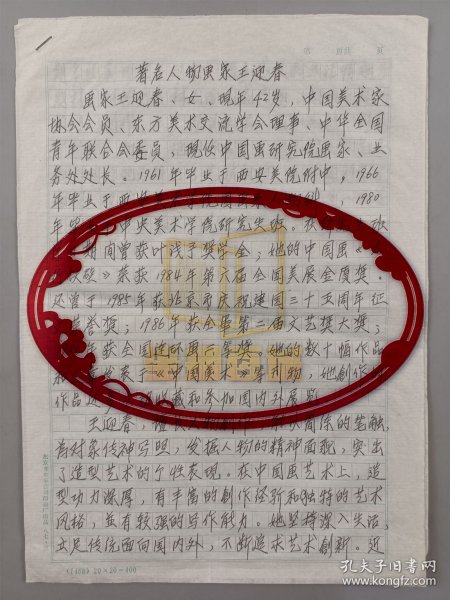 第 页 共 页
著名人物画家王迎春
画家王迎春、女、现年42岁，中国美术家
协会会员、东方美术交流学会理事、中华全国
青年联合会委员，现任中国画研究院画家、业
务处处长。1961年毕业于西安美院附中，1966
年毕业于西安美术学院国画系 1980
年 中央美术学院研究生班，获
期间曾获叶浅予奖学金；她的中国画《
》荣获1984年第六届全国美展金质奖。
还曾于1985年获北京市庆祝建国三十五周年征
荣誉奖；1986年获全军第二届文艺奖大奖；
年获全国连环画二等奖。她的数十幅作品
发表于《中国美术》等刊物，她创作的
作品 收藏和参加国内外展览
王迎春， 简练的笔触，
为对象传神写照，发掘人物的精神面貌，突出
了造型艺术的个性表现。在中国画艺术上，造
型功力深厚，有丰富的创作经验和独特的艺术
风格，并有较强的写作能力。她坚持深入生活，
立足传统面向国内外，不断追求艺术创新。近
(1468) 20×20=400
孔夫子旧书网
kongfz.com